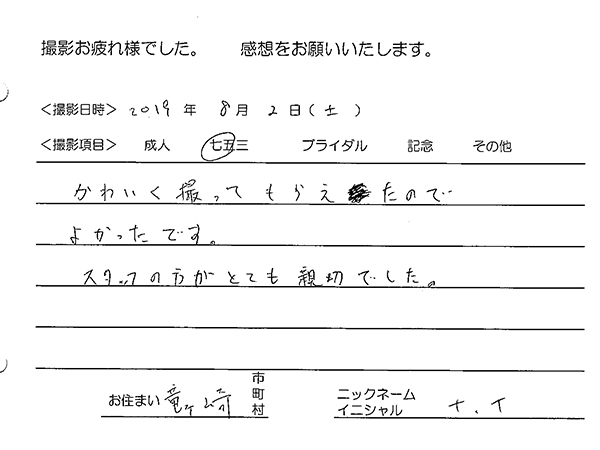 撮影お疲れ様でした。 感想をお願いいたします。
＜撮影日時＞ 2019 年 8 月 2 日(土)
＜撮影項目＞ 成人 七五三 ブライダル 記念 その他
かわいく撮ってもらえたので
よかったです。
スタッフの方がとても親切でした。
お住まい 竜ヶ崎 市町村 ニックネーム イニシャル